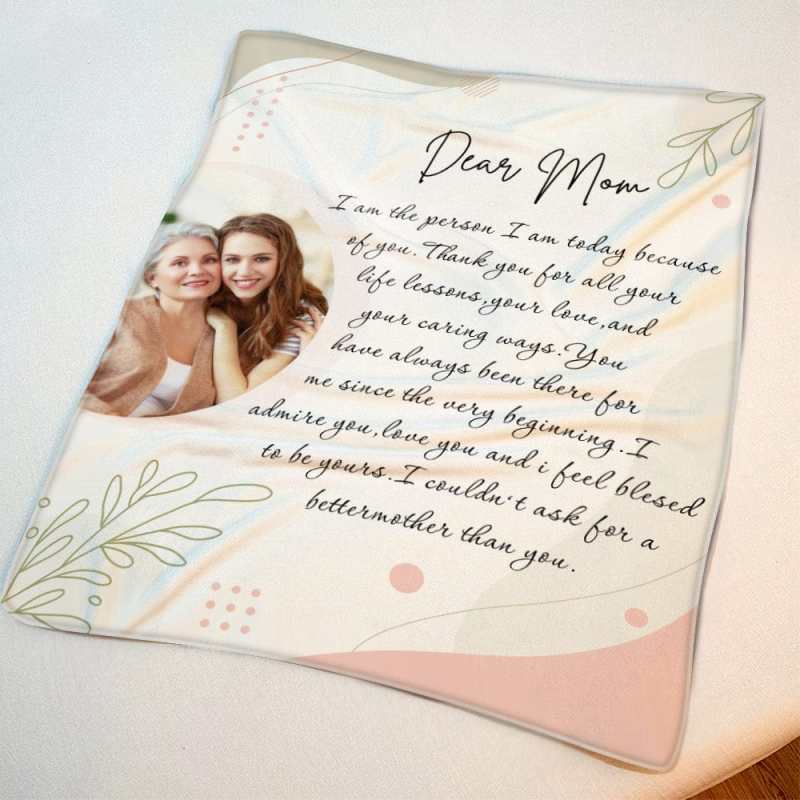 Dear Mom
I am the person I am today because
of you. Thank you for all your
life lessons, your love, and
your caring ways. You
have always been there for
me since the very beginning. I
admire you, love you and i feel blesed
to be yours. I couldn't ask for a
bettermother than you.